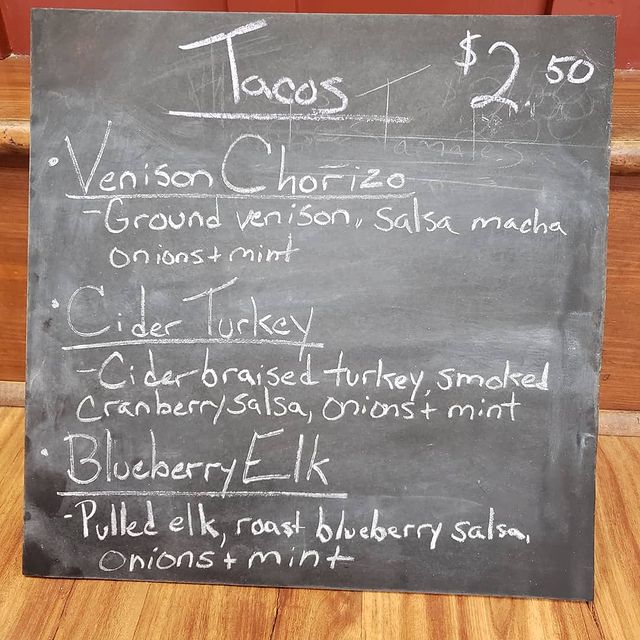 Tacos $2.50
Tamales
• Venison Chorizo
- Ground venison, salsa macha
onions + mint
• Cider Turkey
- Cider braised turkey, smoked
cranberry salsa, onions + mint
• Blueberry Elk
- Pulled elk, roast blueberry salsa,
onions + mint